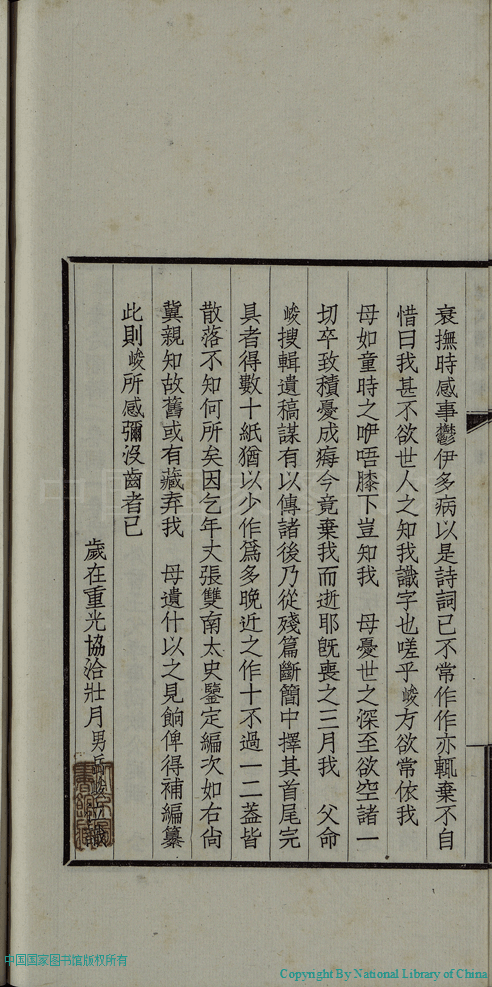 衰撫時感事鬱伊多病以是詩詞已不常作作亦輒棄不自
惜曰我甚不欲世人之知我識字也嗟乎峻方欲常依我
母如童時之咿唔膝下豈知我　母憂世之深至欲空諸一
切卒致積憂成痗今竟棄我而逝耶既喪之三月我　父命
峻搜輯遺稿謀有以傳諸後乃從殘篇斷簡中擇其首尾完
具者得數十紙猶以少作爲多晚近之作十不過一二蓋皆
散落不知何所矣因乞年丈張雙南太史鑒定編次如右尙
冀親知故舊或有藏弆我　母遺什以之見餉俾得補編纂
此則峻所感彌沒齒者已
歲在重光協洽壯月男
中国国家图书馆版权所有
Copyright By National Library of China